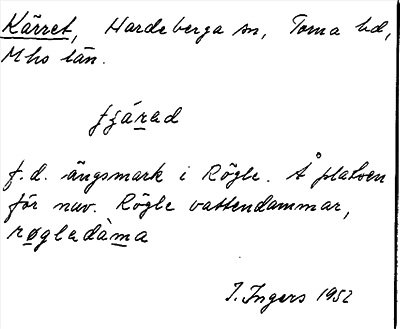 Kärret, Hardeberga sn, Torna hd,
Mhs län.
f.d. ängsmark i Rögle. Å platsen
för nuv. Rögle vattendammar,
røgladàma
I. Ingers 1952